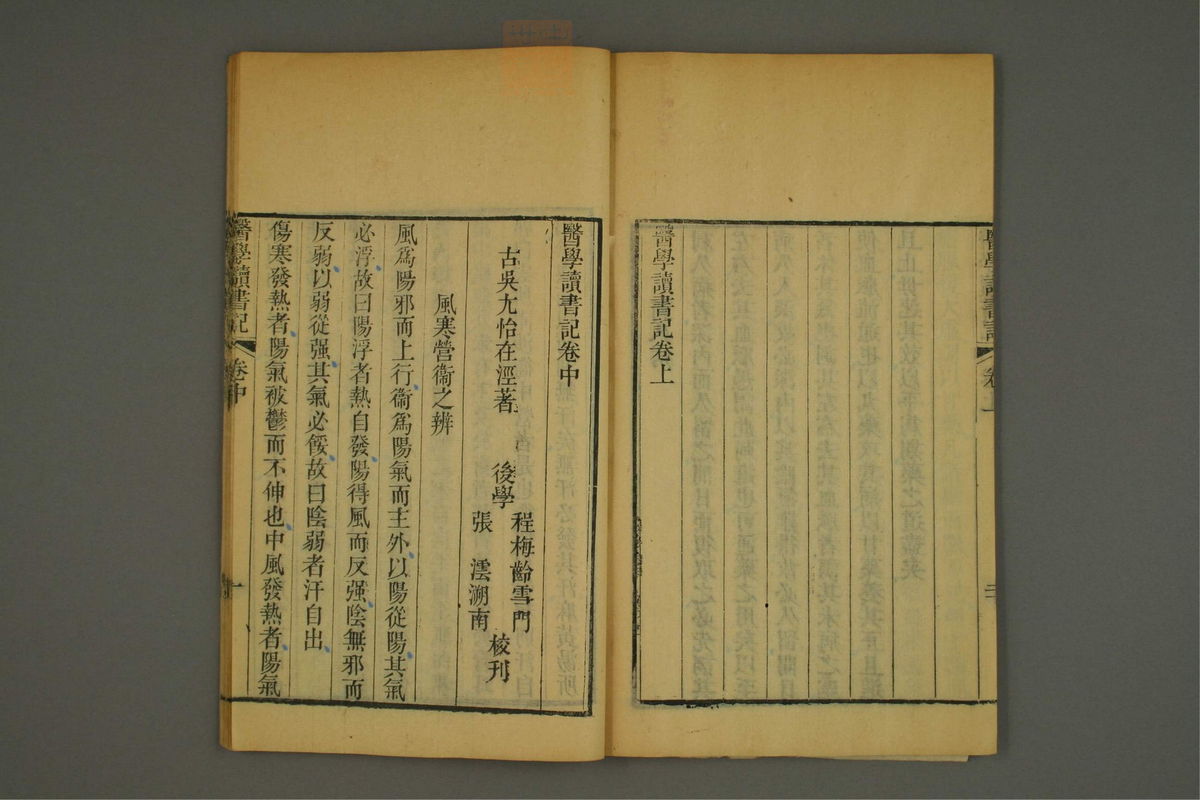 醫學讀書記
醫學讀書記卷上
醫學讀書記卷中
古吳尤怡在涇著
後學
程梅齡雪門
張澐溯南
校刊
風寒營衞之辨
風爲陽邪而上行衞爲陽氣而主外以陽從陽其氣
必浮故曰陽浮者熱自發陽得風而反强陰無邪而
反弱以弱從强其氣必餒故曰陰弱者汗自出
傷寒發熱者陽氣被鬱而不伸也中風發熱者陽氣
醫學讀書記
卷中
一